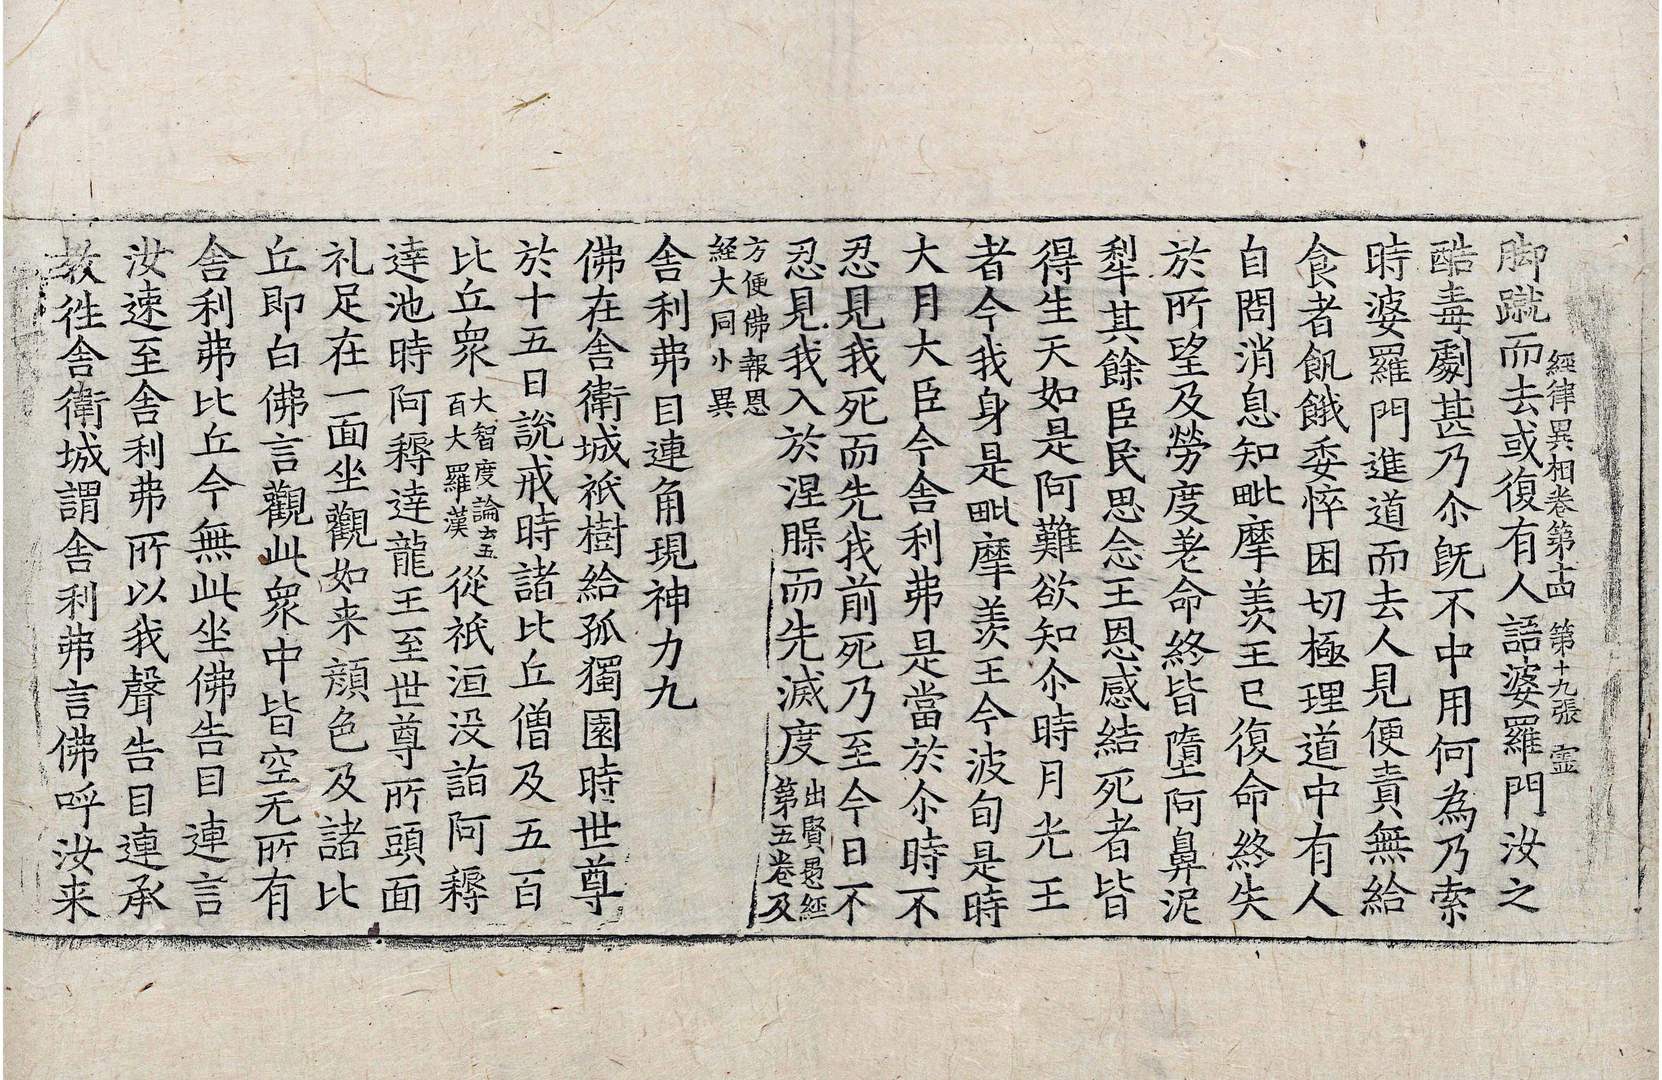 經律異相卷第十四　第十九張　霊
脚蹴而去或復有人語婆羅門汝之
酷毒劇甚乃尒旣不中用何為乃索
時婆羅門進道而去人見便責無給
食者飢餓委悴困切極理道中有人
自問消息知毗摩羨王已復命終失
於所望及勞度差命終皆墮阿鼻泥
犁其餘臣民思念王恩感結死者皆
得生天如是阿難欲知尒時月光王
者今我身是毗摩羨王今波旬是時
大月大臣今舍利弗是當於尒時不
忍見我死而先我前死乃至今日不
忍見我入於涅槃而先滅度出賢愚經
第五卷及
方便佛報恩
經大同小異
舍利弗目連角現神力九
佛在舍衛城祇樹給孤獨園時世尊
於十五日說戒時諸比丘僧及五百
比丘衆大智度論云五
百大羅漢從祇洹没詣阿耨
達池時阿耨達龍王至世尊所頭面
礼足在一面坐觀如来顔色及諸比
丘即白佛言觀此衆中皆空无所有
舍利弗比丘今無此坐佛告目連言
汝速至舍利弗所以我聲告目連承
教徃舍衛城謂舍利弗言佛呼汝来